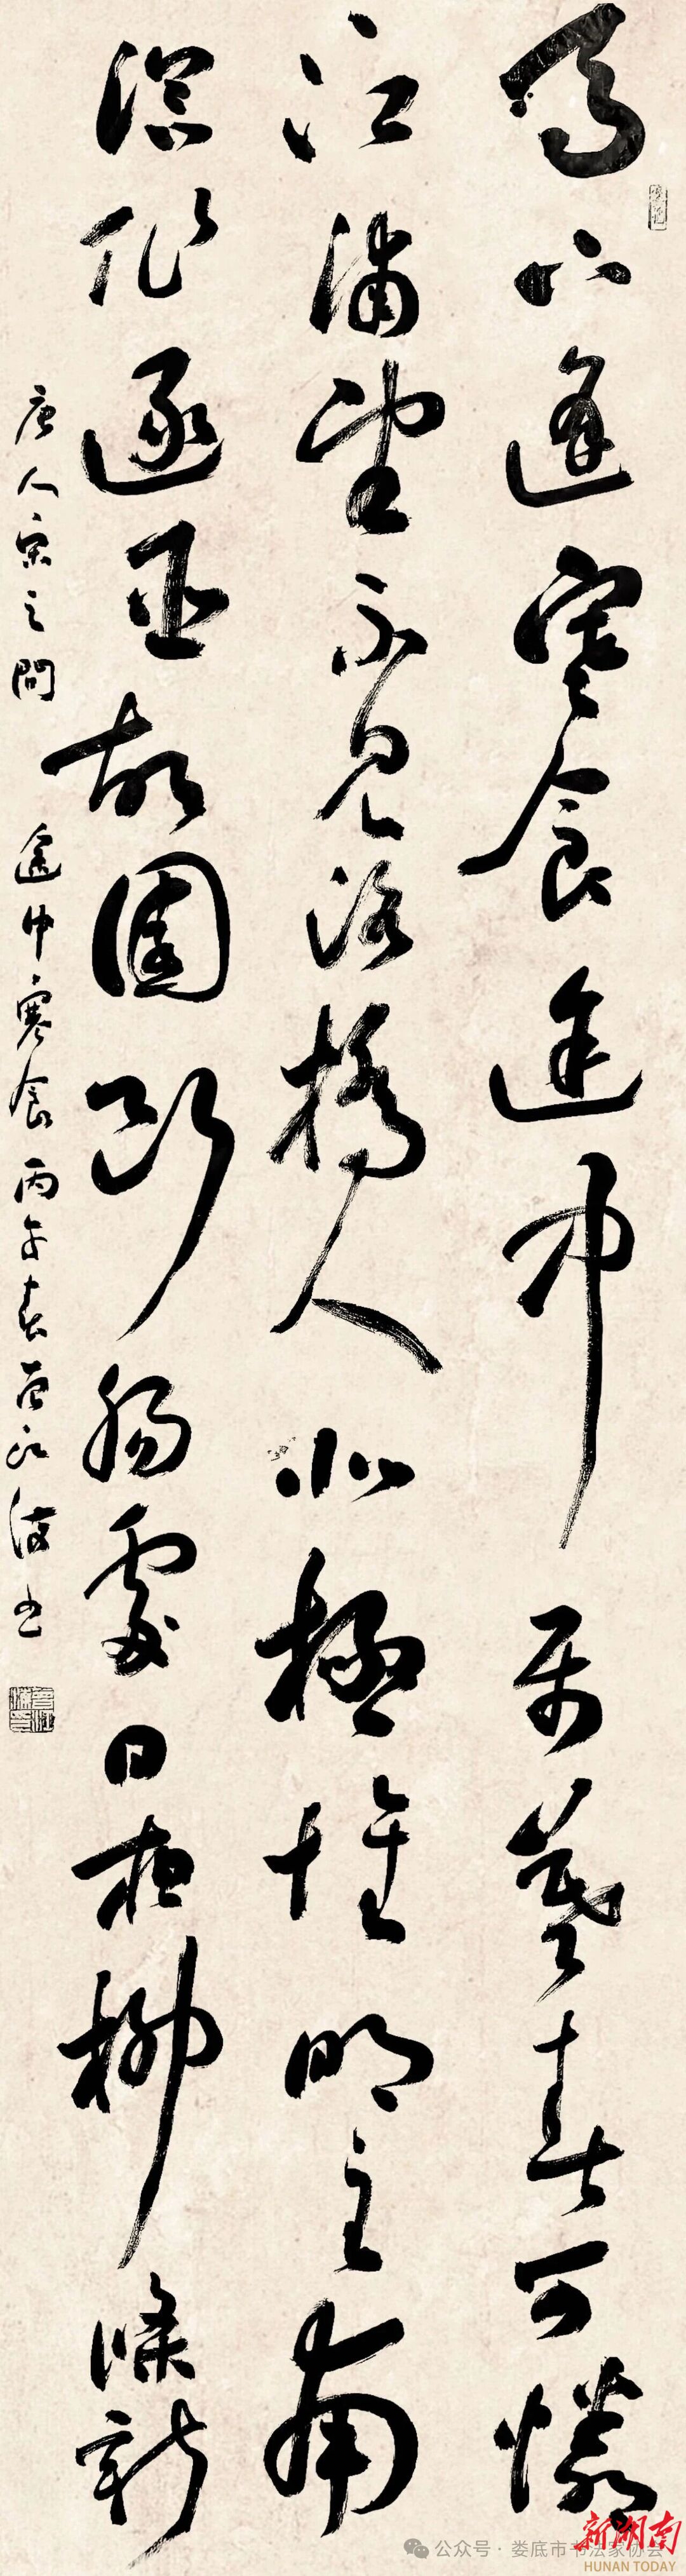 馬上逢寒食途中属暮春可憐
江浦望不見洛橋人北極懷明主南
溟作逐臣故園斷腸處日夜柳條新
唐人宋之問 途中寒食 丙午春江波书
公众号·娄底市书法家协会
新湖南
HUNAN TODAY